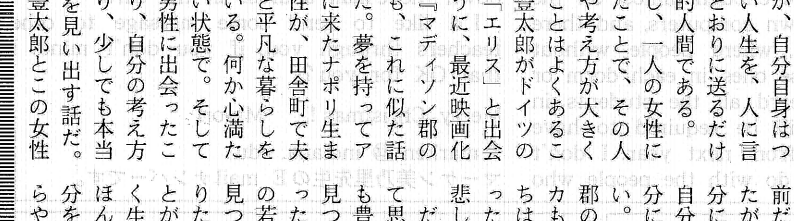 が、自分自身はつ
い人生を、人に言
とおりに送るだけ
的人間である。
し、一人の女性に
たことで、その人
や考え方が大きく
ことはよくあるこ
豊太郎がドイツの
「エリス」と出会
うに、最近映画化
『マディソン郡の
も、これに似た話
た。夢を持ってア
に来たナポリ生ま
性が、田舎町で夫
と平凡な暮らしを
いる。何か心満た
い状態で。そして
男性に出会ったこ
り、自分の考え方
り、少しでも本当
を見い出す話だ。
豊太郎とこの女性
前だ
たが
分に
自分
分に
い。
郡の
カも
ちは
った
悲し
だ
て思
も豊
見つ
った
の若
見つ
りた
とが
く生
ほん
分を
らや